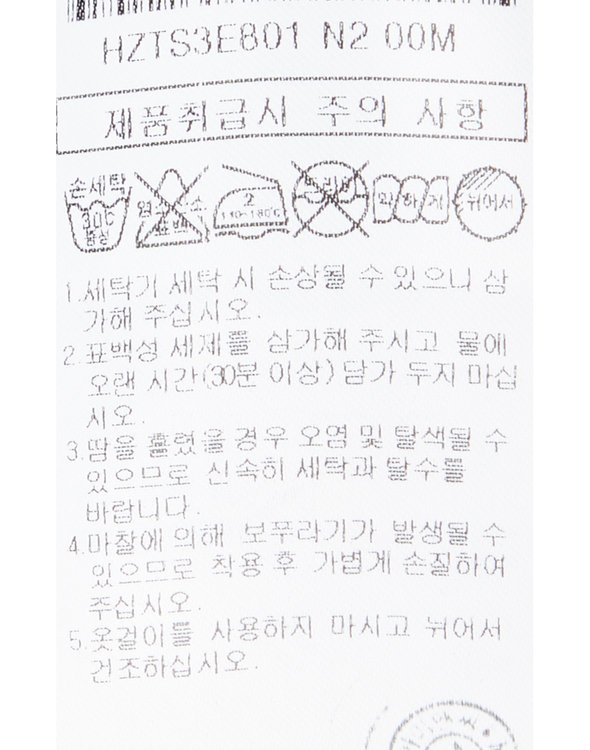 HZTS3E801 N2 00M
제품취급시 주의 사항
손세탁
30℃
중성
염소산소
표백
2
140-180℃
드라이
약하게
뉘어서
1.세탁기 세탁 시 손상될 수 있으니 삼
가해 주십시오.
2.표백성 세제를 삼가해 주시고 물에
오랜 시간(30분 이상) 담가 두지 마십
시오.
3.땀을 흘렸을 경우 오염 및 탈색될 수
있으므로 신속히 세탁과 탈수를
바랍니다.
4.마찰에 의해 보푸라기가 발생될 수
있으므로 착용 후 가볍게 손질하여
주십시오.
5.옷걸이를 사용하지 마시고 뉘어서
건조하십시오.